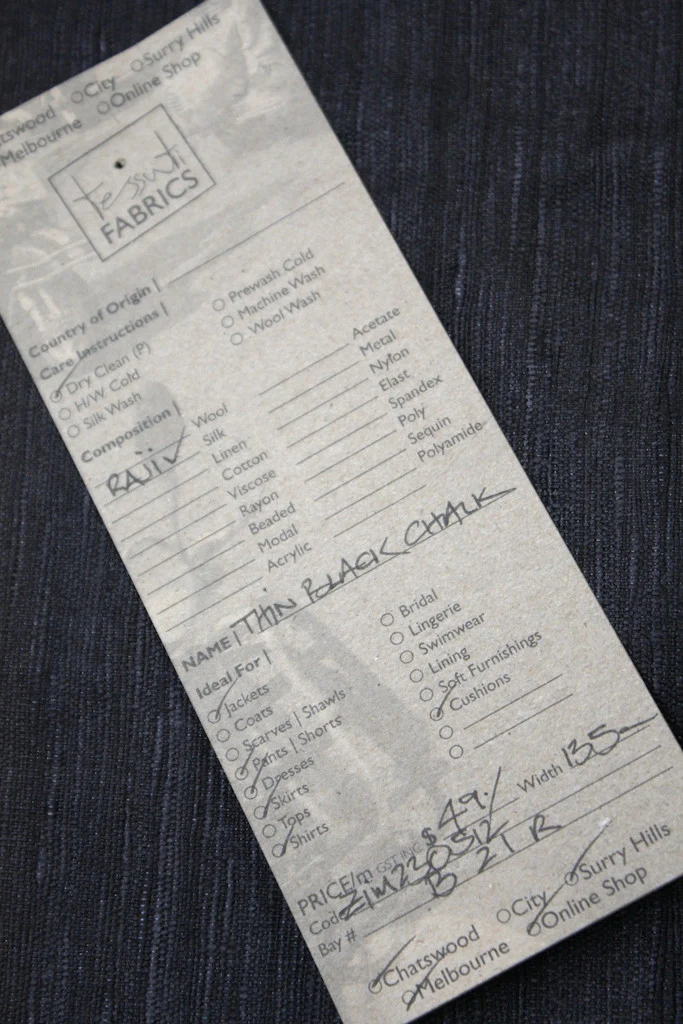 Chatswood ○City ○Surry Hills
Melbourne ○Online Shop
tessuti
FABRICS
Country of Origin |
Care Instructions |
Dry Clean (P) ○ Prewash Cold
○ H/W Cold ○ Machine Wash
○ Silk Wash ○ Wool Wash
Composition |
RAJIV Wool Acetate
Silk Metal
Linen Nylon
Cotton Elast
Viscose Spandex
Rayon Poly
Beaded Sequin
Modal Polyamide
Acrylic
NAME | THIN BLACK CHALK
Ideal For |
Jackets ○ Bridal
○ Coats ○ Lingerie
○ Scarves | Shawls ○ Swimwear
Pants | Shorts ○ Lining
Dresses ○ Soft Furnishings
Skirts Cushions
○ Tops
Shirts
PRICE/m GST INC $ 49·/ Width 135cm
Code
Bay # B 21 R
Chatswood ○City Surry Hills
Melbourne Online Shop